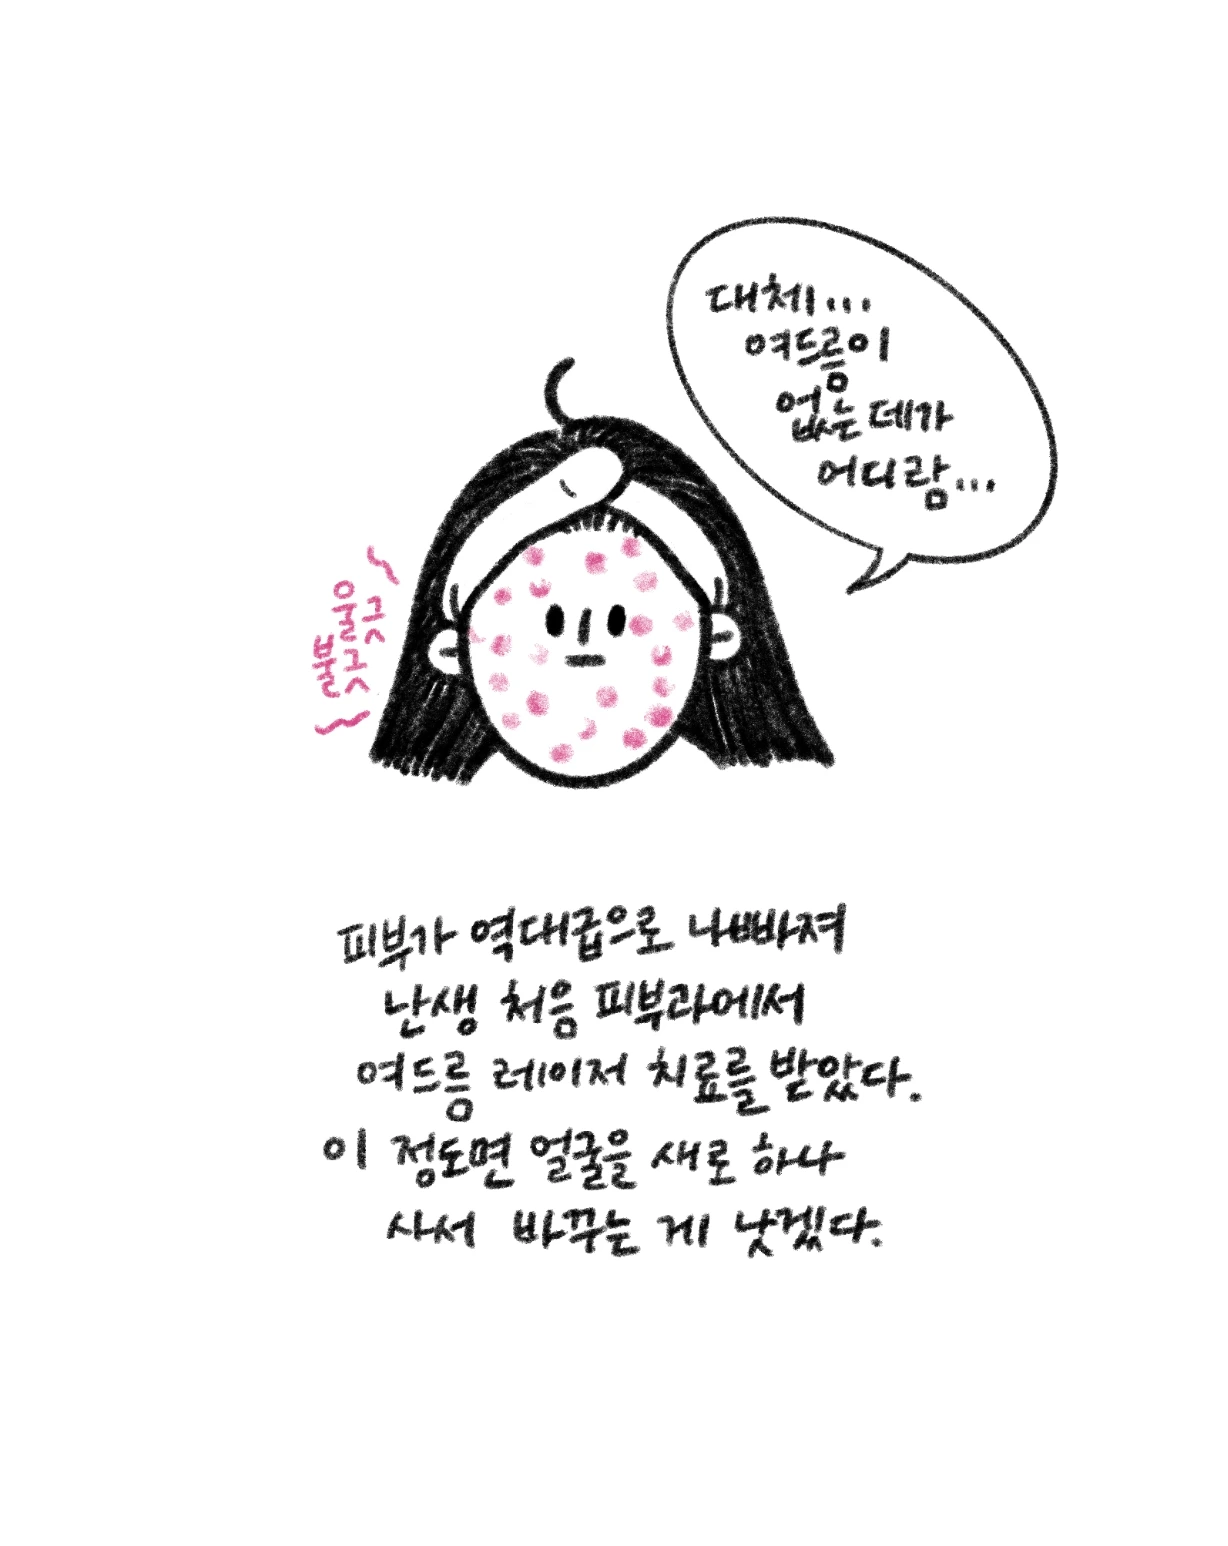 대체...
여드름이
없는 데가
어디람...
울긋
불긋
피부가 역대급으로 나빠져
난생 처음 피부과에서
여드름 레이저 치료를 받았다.
이 정도면 얼굴을 새로 하나
사서 바꾸는 게 낫겠다.